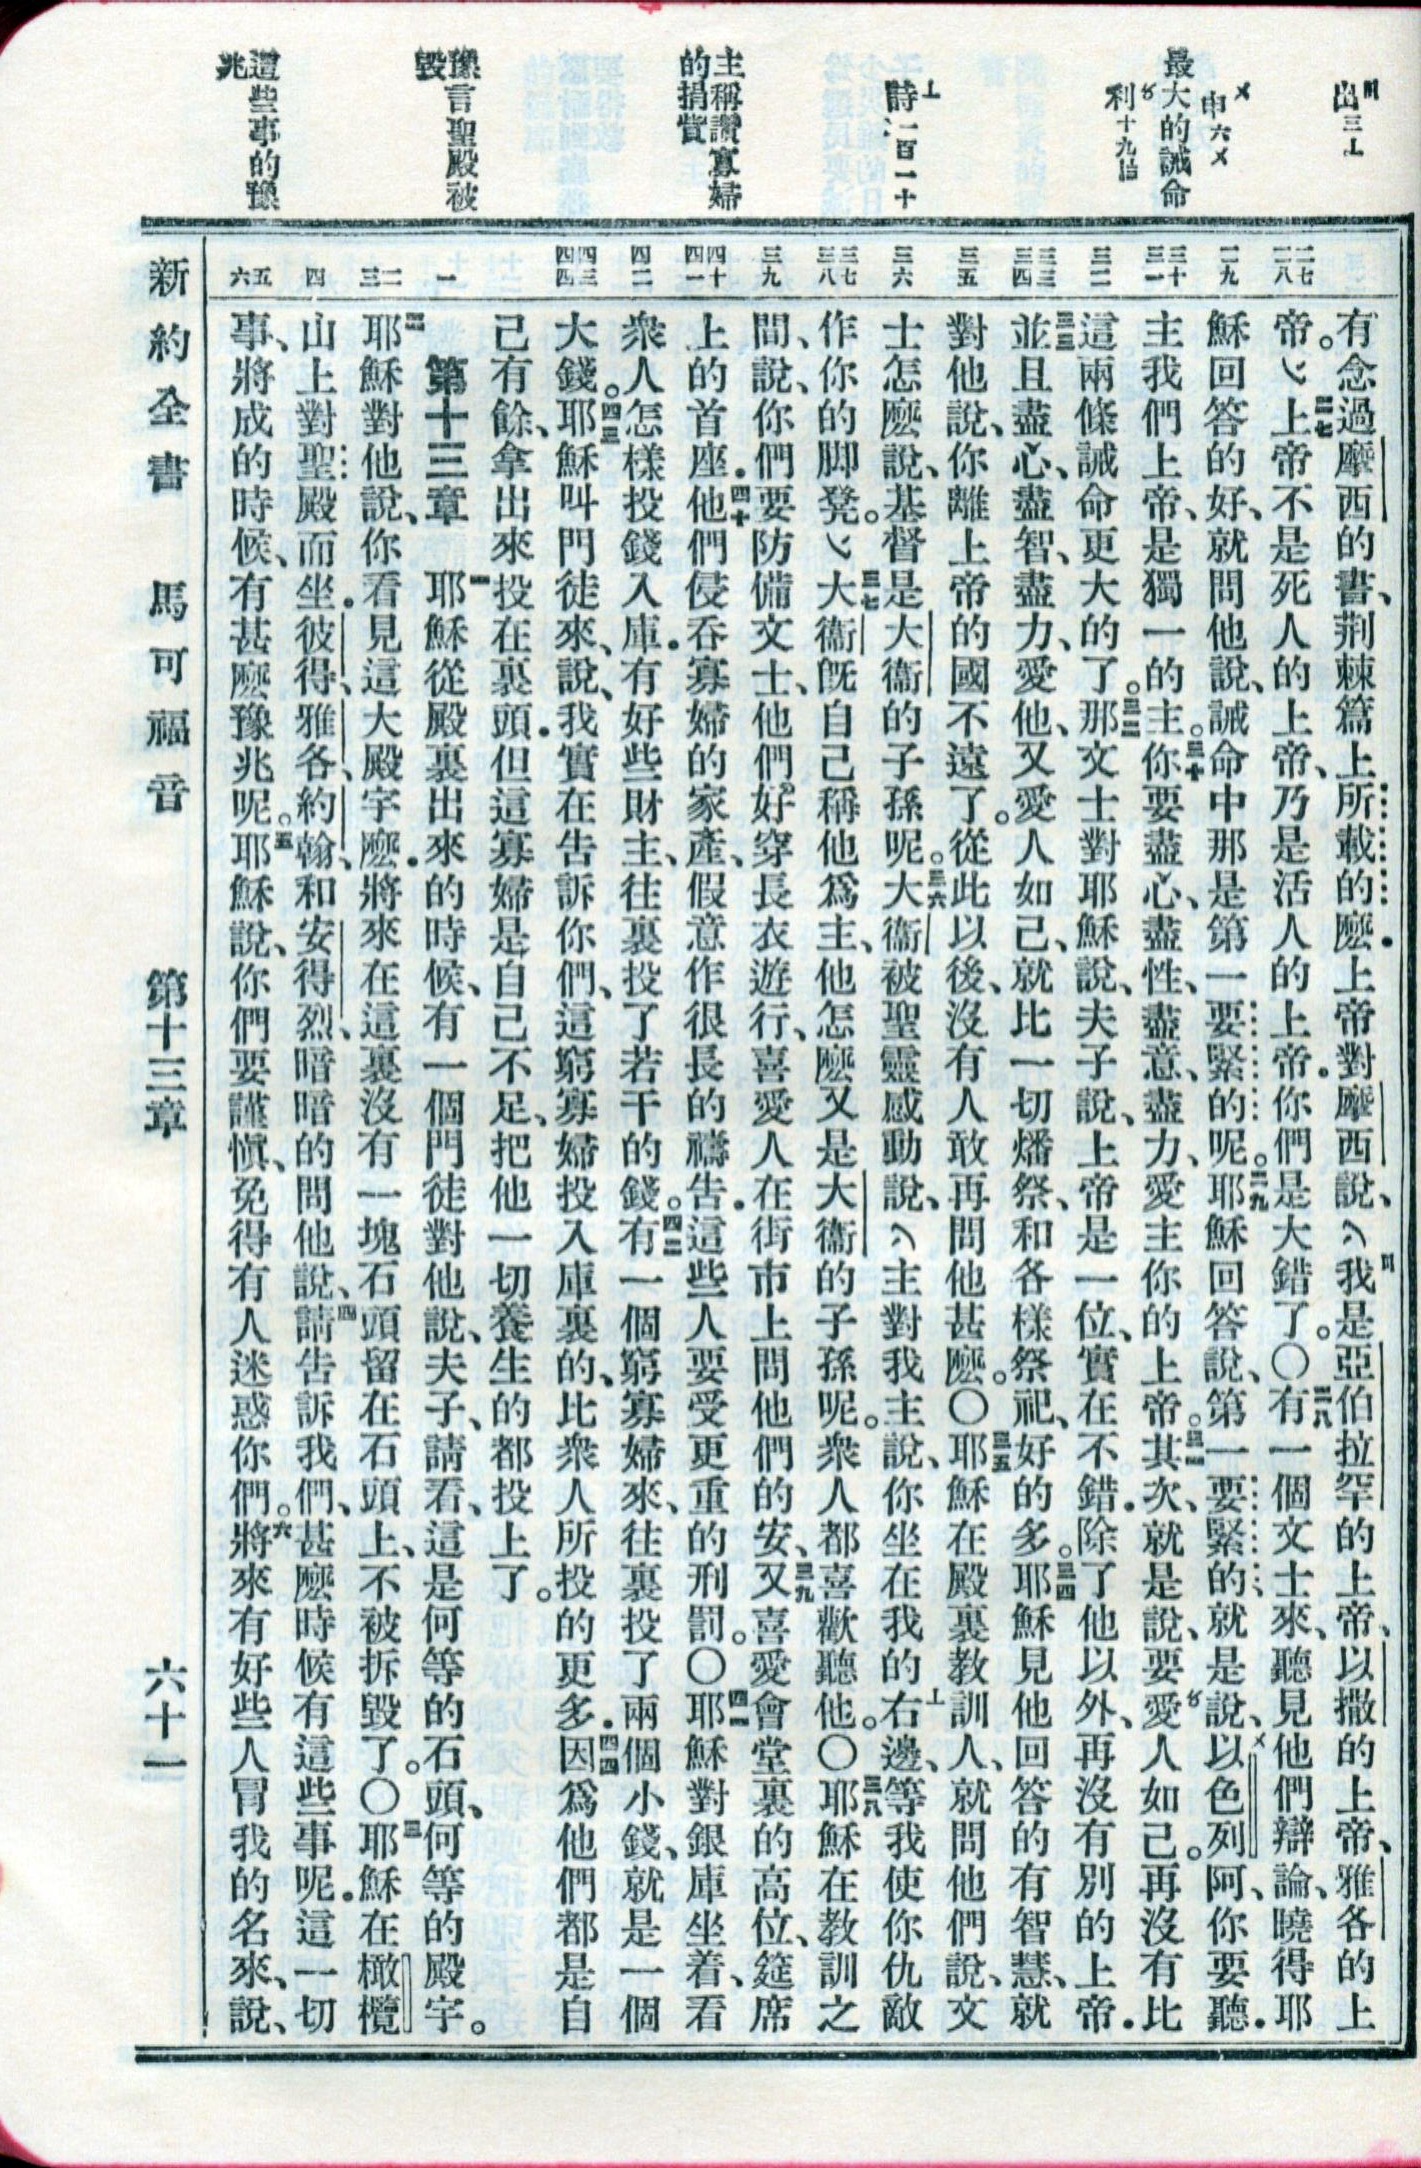 出三
申六
最大的誡命
利十九
詩一百一十
主稱讚寡婦
的捐貲
豫言聖殿被
毀
這些事的豫
兆
二七
二八
二九
三十
三一
三二
三三
三四
三五
三六
三七
三八
三九
四十
四一
四二
四三
四四
一
二
三
四
五
六
有念過摩西的書、荆棘篇上所載的麽．上帝對摩西說、我是亞伯拉罕的上帝、以撒的上帝、雅各的上
帝。二七上帝不是死人的上帝、乃是活人的上帝．你們是大錯了。〇二八有一個文士來、聽見他們辯論、曉得耶
穌回答的好、就問他說、誡命中那是第一要緊的呢。二九耶穌回答說、第一要緊的、就是說、以色列阿、你要聽．
主我們上帝、是獨一的主。三十你要盡心、盡性、盡意、盡力、愛主你的上帝。三一其次、就是說、要愛人如己。再沒有比
這兩條誡命更大的了。三二那文士對耶穌說、夫子說、上帝是一位、實在不錯．除了他以外、再沒有別的上帝．
三三並且盡心、盡智、盡力、愛他、又愛人如己、就比一切燔祭、和各樣祭祀、好的多。三四耶穌見他回答的有智慧、就
對他說、你離上帝的國不遠了。從此以後、沒有人敢再問他甚麽。〇三五耶穌在殿裏教訓人、就問他們說、文
士怎麽說、基督是大衞的子孫呢。三六大衞被聖靈感動說、主對我主說、你坐在我的右邊、等我使你仇敵
作你的脚凳。三七大衞旣自己稱他爲主、他怎麽又是大衞的子孫呢。衆人都喜歡聽他。〇三八耶穌在教訓之
間、說、你們要防備文士、他們好穿長衣遊行、喜愛人在街市上問他們的安、三九又喜愛會堂裏的高位、筵席
上的首座．四十他們侵吞寡婦的家產、假意作很長的禱告．這些人要受更重的刑罰。〇四一耶穌對銀庫坐着、看
衆人怎樣投錢入庫．有好些財主、往裏投了若干的錢。四二有一個窮寡婦來、往裏投了兩個小錢、就是一個
大錢。四三耶穌叫門徒來、說、我實在告訴你們、這窮寡婦投入庫裏的、比衆人所投的更多．四四因爲他們都是自
己有餘、拿出來投在裏頭．但這寡婦是自己不足、把他一切養生的都投上了。
第十三章　一耶穌從殿裏出來的時候、有一個門徒對他說、夫子、請看、這是何等的石頭、何等的殿宇。
二耶穌對他說、你看見這大殿宇麽．將來在這裏沒有一塊石頭留在石頭上、不被拆毀了。〇三耶穌在橄欖
山上對聖殿而坐．彼得、雅各、約翰、和安得烈、暗暗的問他說、四請告訴我們、甚麽時候有這些事呢．這一切
事、將成的時候、有甚麽豫兆呢。五耶穌說、你們要謹愼、免得有人迷惑你們。六將來有好些人冒我的名來、說、
新約全書　馬可福音　第十三章　六十一